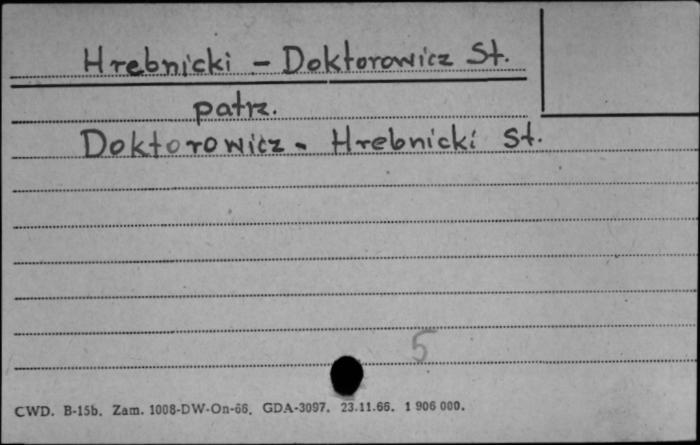 Hrebnicki - Doktorowicz St.
patrz.
Doktorowicz - Hrebnicki St.
5
CWD. B-15b. Zam. 1008-DW-On-66. GDA-3097. 23.11.66. 1 906 000.